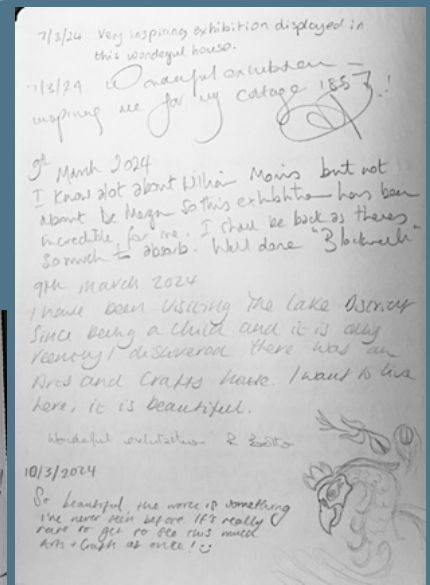 7/3/24 Very inspiring exhibition displayed in
this wonderful house.
7/3/24 Wonderful exhibition –
inspiring me for my cottage 1857!
9th March 2024
I know alot about William Morris but not
about De Morgan so this exhibition has been
incredible for me. I shall be back as theres
so much to absorb. Well done "Blackwell"
9th March 2024
I have been visiting the Lake District
since being a child and it is only
recently I discovered there was an
Arts and Crafts house. I want to live
here, it is beautiful.
Wonderful exhibition R
10/3/2024
So beautiful, the work is something
I've never seen before it's really
rare to get to see this much
Arts + Crafts at once! :)